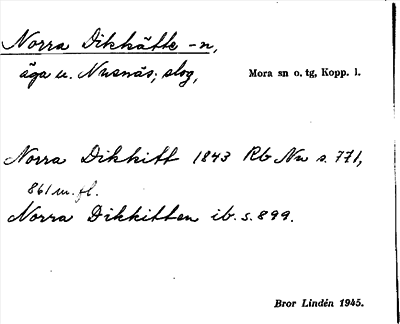 Norra Dikkätte -n,
äga u. Nusnäs; slog,
Mora sn o. tg, Kopp. l.
Norra Dikkitt 1843 Rb Nu s. 771,
861 m. fl.
Norra Dikkitten ib. s. 899.
Bror Lindén 1945.